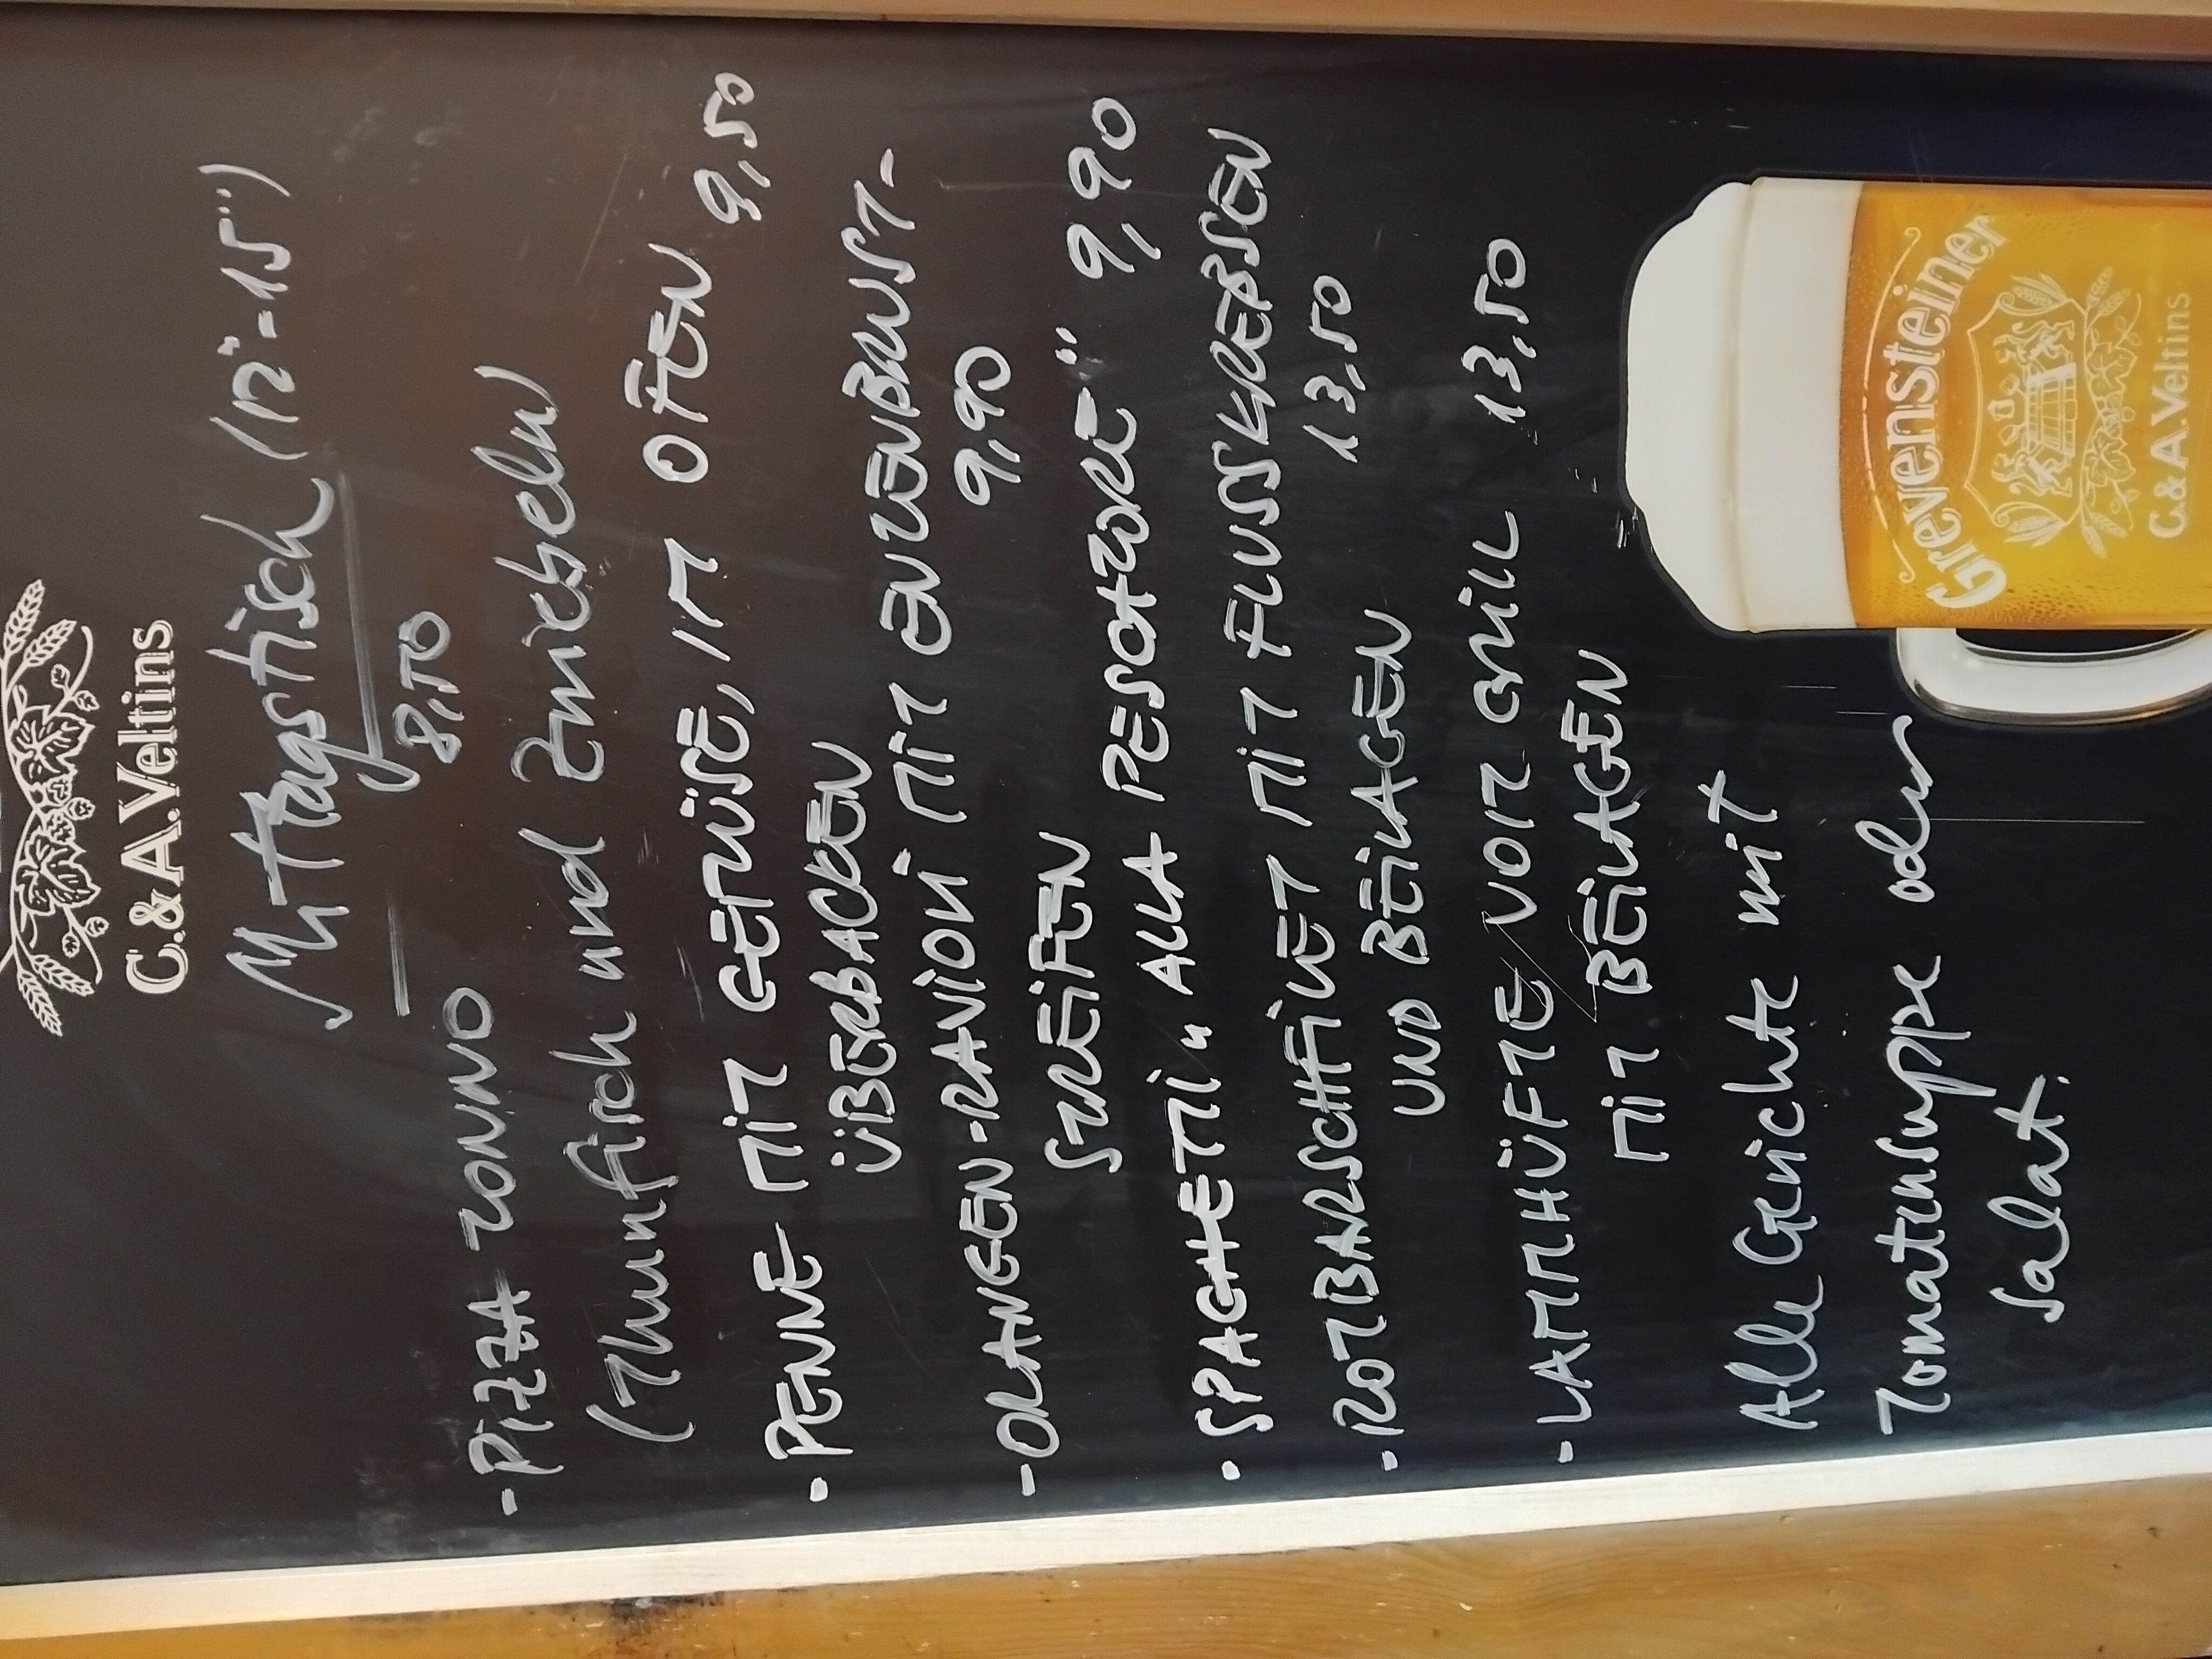 C. & A. Veltins
Mittagstisch (12°°-15°°)
- PIZZA TONNO 8,50
(Thunfisch und Zwiebeln
- PENNE MIT GEMÜSE, IM OFEN 9,50
ÜBERBACKEN
- ORANGEN-RAVIOLI MIT ENTENBRUST-
STREIFEN 9,90
- SPAGHETTI "ALLA PESCATORE" 9,90
- ROTBARSCHFILET MIT FLUSSKREBSEN
UND BEILAGEN 13,50
- LAMMHÜFTE VOM GRILL 13,50
MIT BEILAGEN
Alle Gerichte mit
Tomatensuppe oder
Salat.
Grevensteiner
C. & A. Veltins